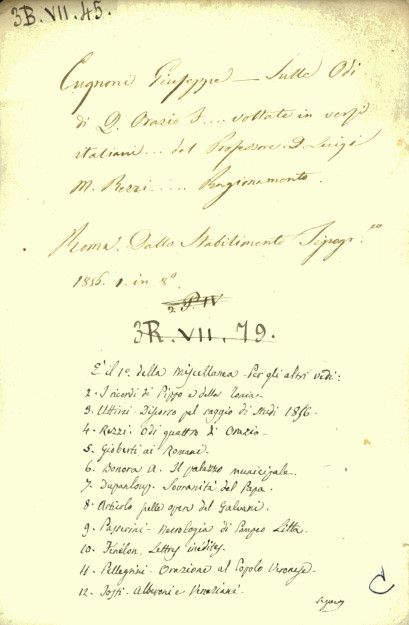 3B. VII. 45.
Cugnoni Giuseppe — Sulle Odi
di Q. Orazio F.... voltate in versi
italiani... dal Professore D. Luigi
M. Rezzi..... Ragionamento.
Roma. Dallo Stabilimento Tipogr.co
1856. 1. in 8°.
2. P. IV
3R. VII. 79.
È il 1°. della Miscellanea. Per gli altri vedi:
2. I ricordi di Pippo e della Tonia.
3. Uttini. Discorso pel saggio di studi 1856.
4. Rezzi. Odi quattro di Orazio.
5. Gioberti ai Romani.
6. Bonora A. Il palazzo municipale.
7. Dupanloup. Sovranità del Papa.
8. Articolo sulle opere del Galvani.
9. Passerini. Necrologia di Pompeo Litta.
10. Fénélon. Lettres inédites.
11. Pellegrini. Orazione al Popolo Veronese.
12. Tosti. Alberoni e Veneziani.
C